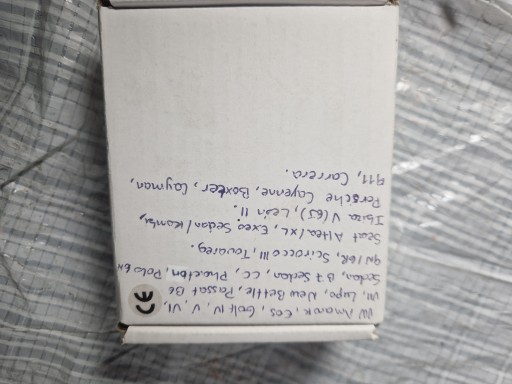 VW Amarok, Eos, Golf IV, V, VI,
VII, Lupo, New Bettle, Passat B6
Sedan, B7 Sedan, CC, Phaeton, Polo 6N
9N/6R, Scirocco III, Touareg.
Seat Altea/XL, Exeo Sedan/Kombi,
Ibiza V (6J), León II.
Porsche Cayenne, Boxster, Cayman,
911, Carrera.
CE